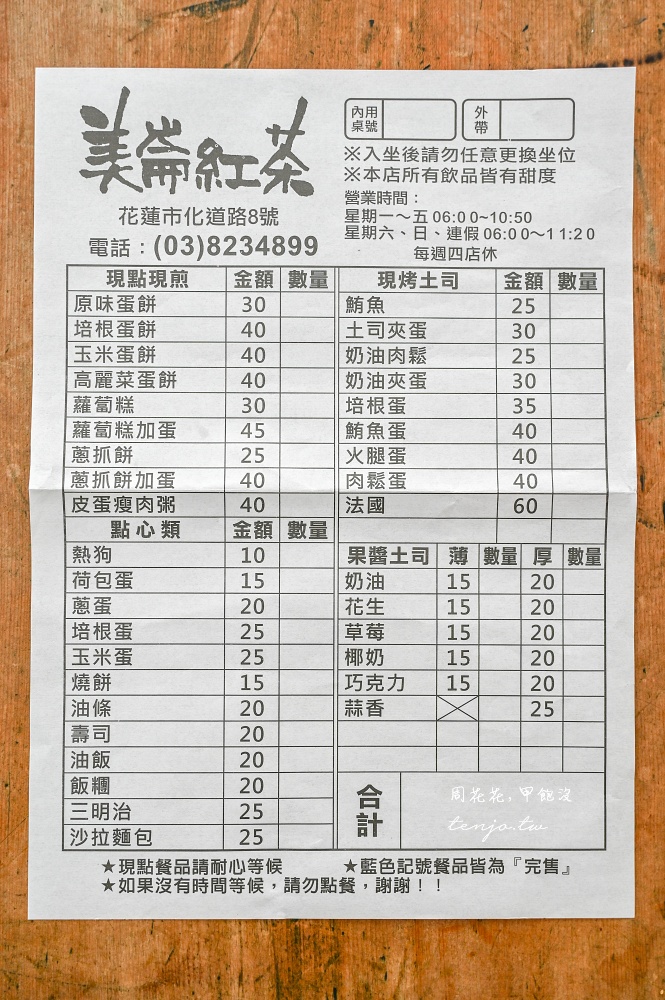 美崙紅茶
花蓮市化道路8號
電話：(03)8234899
內用桌號
外帶
※入坐後請勿任意更換坐位
※本店所有飲品皆有甜度
營業時間：
星期一～五 06:00~10:50
星期六、日、連假 06:00～11:20
每週四店休
現點現煎 金額 數量
原味蛋餅 30
培根蛋餅 40
玉米蛋餅 40
高麗菜蛋餅 40
蘿蔔糕 30
蘿蔔糕加蛋 45
蔥抓餅 25
蔥抓餅加蛋 40
皮蛋瘦肉粥 40
點心類 金額 數量
熱狗 10
荷包蛋 15
蔥蛋 20
培根蛋 25
玉米蛋 25
燒餅 15
油條 20
壽司 20
油飯 20
飯糰 20
三明治 25
沙拉麵包 25
現烤土司 金額 數量
鮪魚 25
土司夾蛋 30
奶油肉鬆 25
奶油夾蛋 30
培根蛋 35
鮪魚蛋 40
火腿蛋 40
肉鬆蛋 40
法國 60
果醬土司 薄 數量 厚 數量
奶油 15 20
花生 15 20
草莓 15 20
椰奶 15 20
巧克力 15 20
蒜香 25
合計
周花花，甲飽沒
tenjo.tw
★現點餐品請耐心等候 ★藍色記號餐品皆為『完售』
★如果沒有時間等候，請勿點餐，謝謝！！